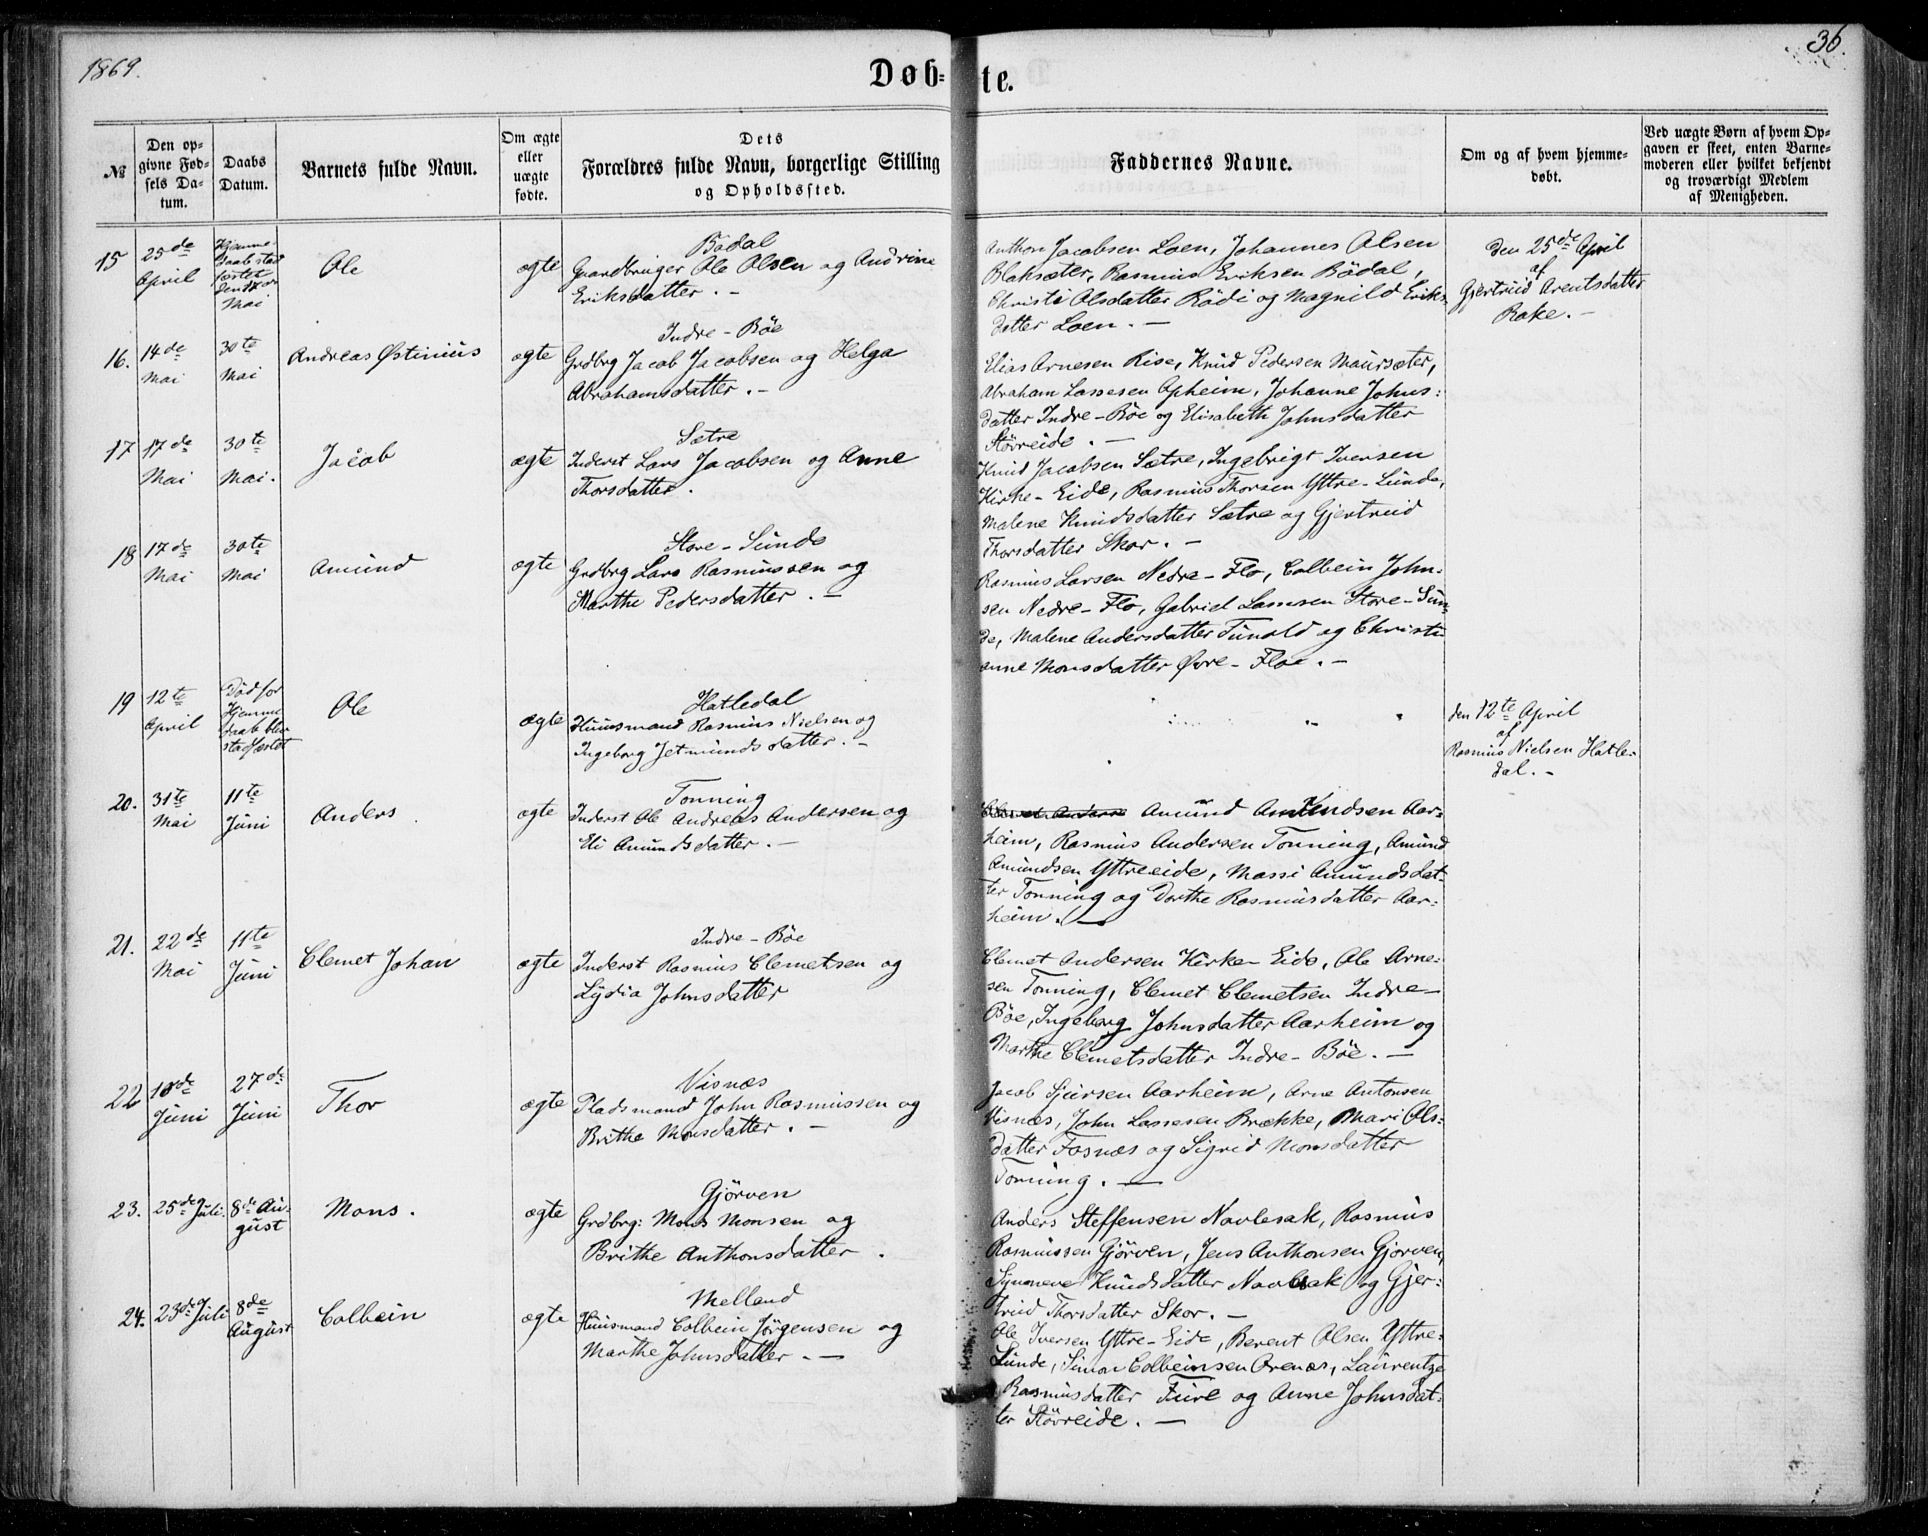 1869.
36.
Døb-te.
№
Den op-
givne Fød-
sels Da-
tum.
Daabs
Datum.
Barnets fulde Navn.
Om ægte
eller
uægte
fødte.
Dets
Forældres fulde Navn, borgerlige Stilling
og Opholdssted.
Faddernes Navne.
Om og af hvem hjemme-
døbt.
Ved uægte Børn af hvem Op-
gaven er skeet, enten Barne-
moderen eller hvilket bekjendt
og troværdigt Medlem
af Menigheden.
15
25de
April
Hjemme-
daab stad
fæstet
Mai
Ole
ægte
Bødal
Gaardbruger Ole Olsen og Andrine
Eriksdatter. -
Anthon Jacobsen Loen, Johannes Olsen
Blaksæter, Rasmus Eriksen Bødal,
Christi Olsdatter Rødi og Magnild Eriks-
datter Loen. -
den 25de April
af
Gjertrud Arentsdatter
Rake. -
16.
14de
Mai
30te
Mai
Andreas Østinius
ægte
Indre - Bøe
Grdbrg Jacob Jacobsen og Helga
Abrahamsdatter. -
Elias Arnesen Rise, Knud Pedersen Maursæter,
Abraham Lassesen Opheim, Johanne Johns:
datter Indre - Bøe og Elisabeth Johnsdatter
Størreide. -
17
17de
Mai
30te
Mai.
Jacob
ægte
Sætre
Inderst Lars Jacobsen og Anne
Thorsdatter.
Knud Jacobsen Sætre, Ingebrigt Iversen
Kirke - Eide, Rasmus Thorsen Yttre - Sunde,
Malene Knudsdatter Sætre og Gjertrud
Thorsdatter Skor. -
18
17de
Mai
30te
Mai
Amund
ægte
Store - Sunde
Grdbrg Lars Rasmussen og
Marthe Pedersdatter. -
Rasmus Larsen Nedre - Flo, Colbein John-
sen Nedre - Flo, Gabriel Larnsen Store - Sun-
de, Malene Andersdatter Tunold og Christi
anne Monsdatter Øvre - Floe. -
19
12te
April
Død før
Hjemme
daab blev
stadfæstet
Ole
ægte
Hatledal
Huusmand Rasmus Nielsen og
Ingeborg Jetmundsdatter. -
den 12te April
af
Rasmus Nielsen Hatle-
dal. -
20.
31te
Mai
11te
Juni
Anders
ægte
Tonning
Inderst Ole Andreas Andersen og
Eli Amundsdatter. -
Amund Amundsen Aar-
heim, Rasmus Andersen Tonning, Amund
Amundsen Yttreeide, Massi Amundsdat-
ter Tonning og Dorthe Rasmusdatter Aar-
heim. -
21.
22de
Mai
11te
Juni
Clemet Johan
ægte
Indre - Bøe
Inderst Rasmus Clemetsen og
Lydia Johnsdatter
Clemet Andersen Kirke - Eide, Ole Arne-
sen Tonning, Clemet Clemetsen Indre -
Bøe, Ingeborg Johnsdatter Aarheim og
Marthe Clemetsdatter Indre - Bøe. -
22
10de
Juni
27de
Juni
Thor
ægte
Visnæs
Pladsmand John Rasmussen og
Brithe Monsdatter. -
Jacob Sjursen Aarheim, Arne Antonsen
Visnæs, John Lassesen Brække, Mari Ols-
datter Fosnæs og Sigrid Monsdatter
Tonning. -
23.
25de Juli.
8de Au-
gust
Mons.
ægte
Gjørven
Grdbrg: Mons Monsen og
Brithe Anthonsdatter.
Anders Steffensen Navlesak, Rasmus
Rasmussen Gjørven, Jens Anthonsen Gjørven,
Synneve Knudsdatter Navlesak og Gjer-
trud Thorsdatter Skor. -
24.
23de Juli
8de
August
Colbein
ægte
Melland
Huusmand Colbein Jørgensen og
Marthe Johnsdatter. -
Ole Iversen Yttre - Eide, Berent Olsen Yttre-
Sunde, Simon Colbeinsen Ørenæs, Laurentze
Rasmusdatter Fure og Anne Johnsdat-
ter Størreide. -